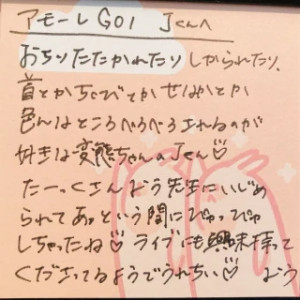 アモーレG01 Jくんへ
おちりたたかれたり しかられたり、
首とかちくびとかせなかとか
色んなところぺろぺろされるのが
好きな変態ちゃんのJくん♡
たーっくさんおう先生にいじめ
られてあっという間にぴゅっぴゅ
しちゃったね♡ ライブにも興味持って
くださってるようでうれちい♡ おう